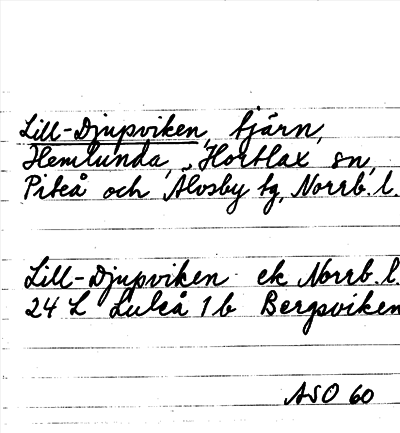 Lill-Djupviken, tjärn,
Hemlunda, Hortlax sn,
Piteå och Älvsby tg, Norrb. l.
Lill-Djupviken ek Norrb. l.
24 L Luleå 1b Bergsviken
ASO 60